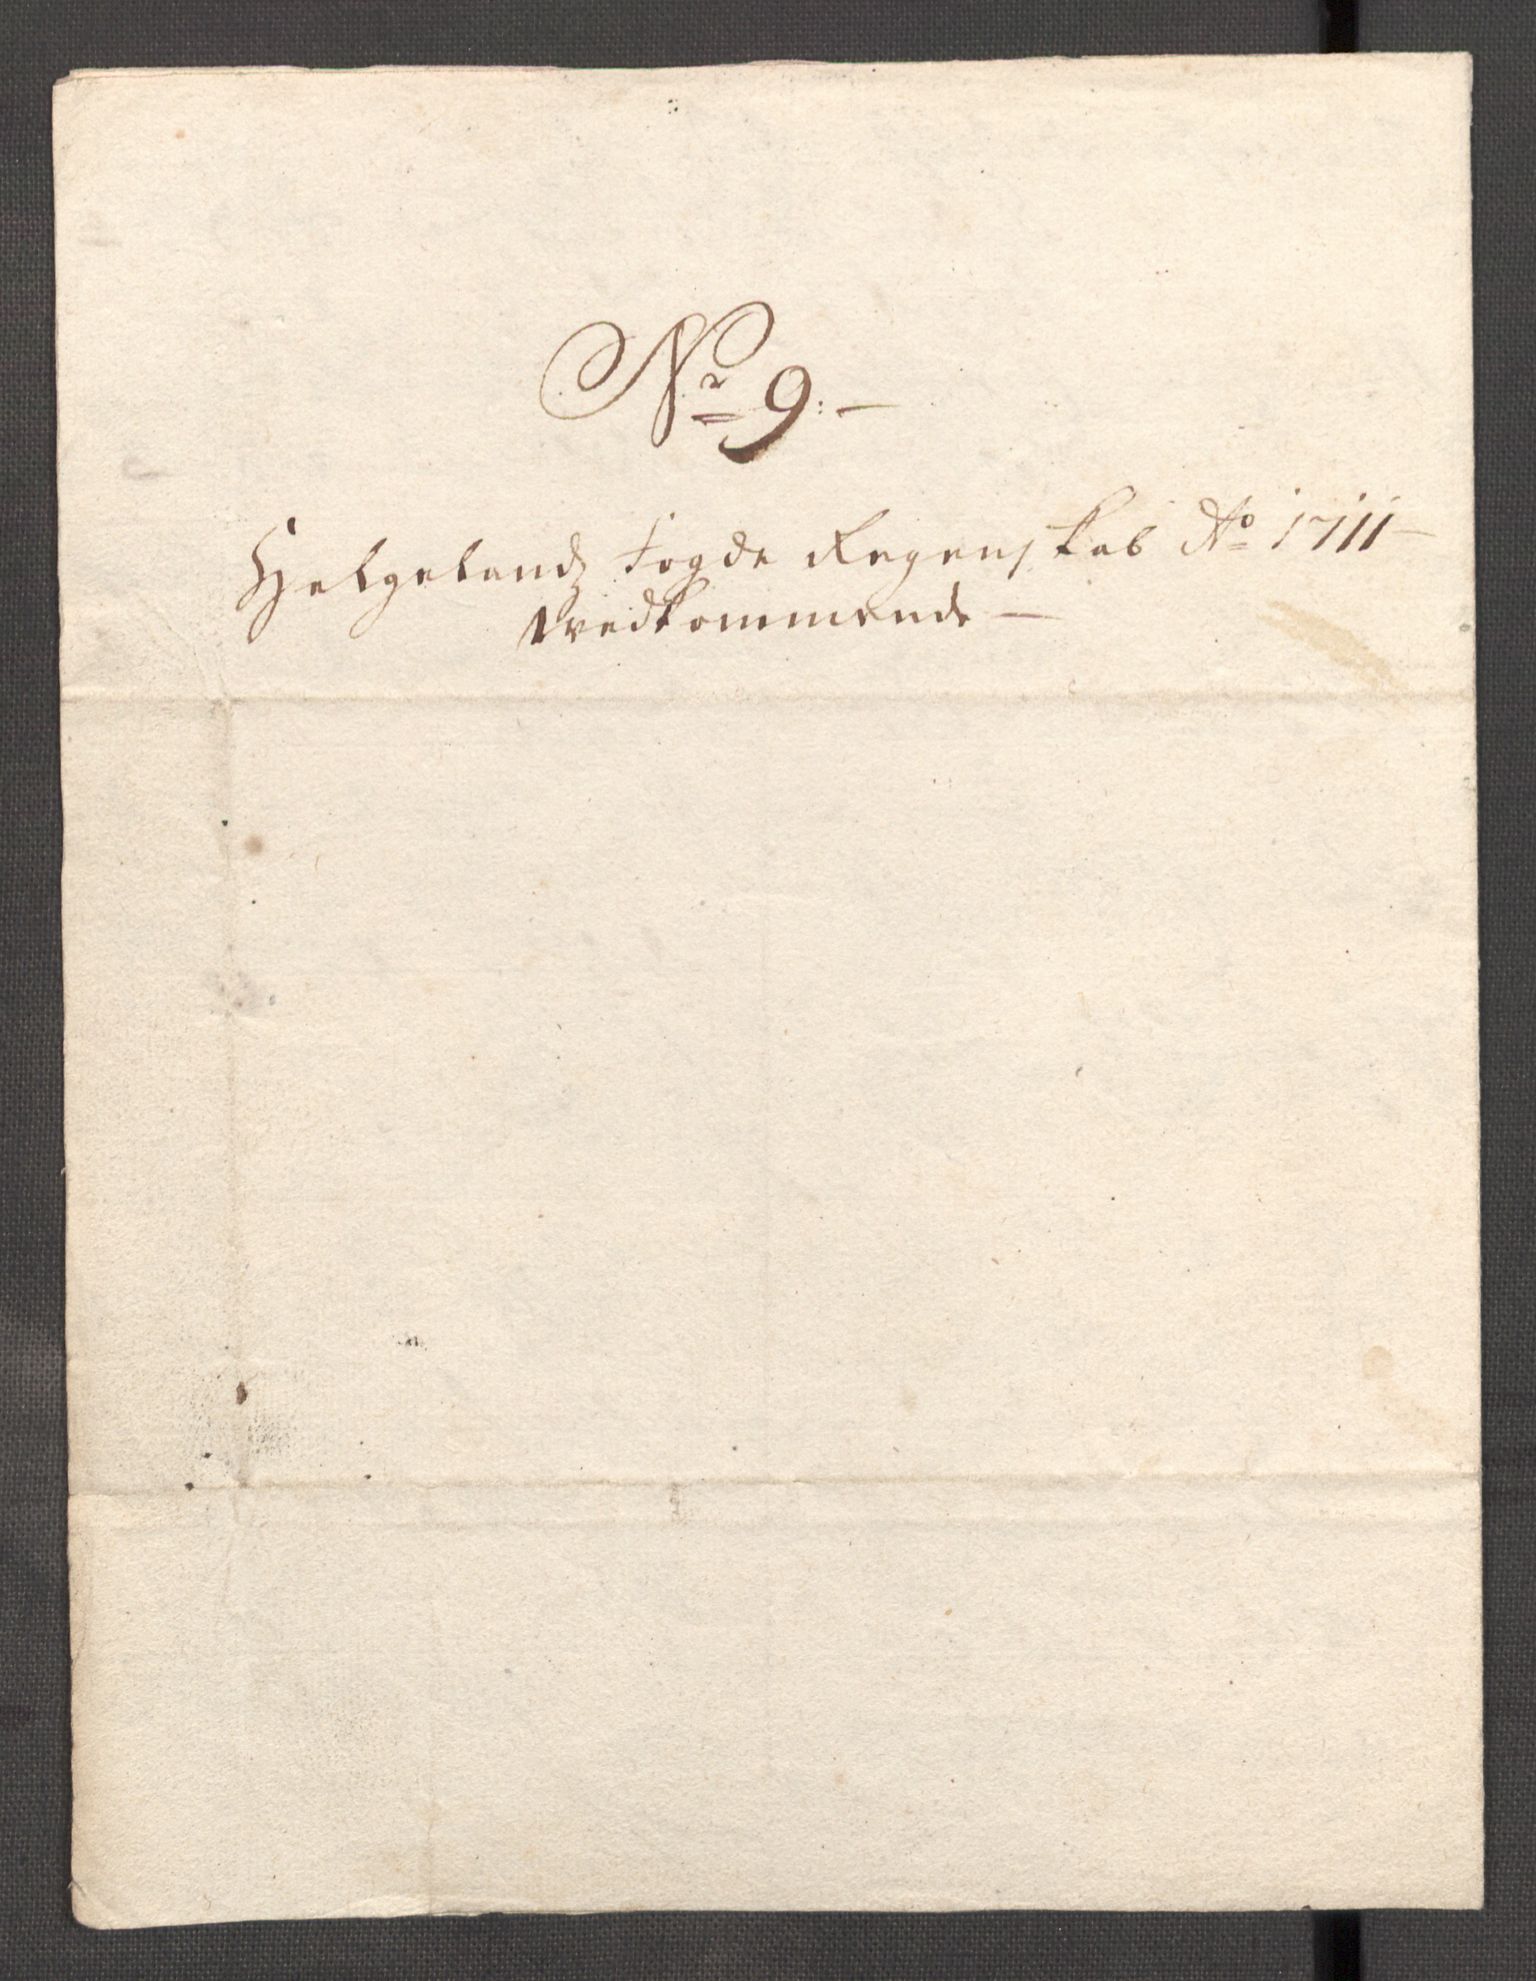 Nr 9:—
Helgelands Fogde Regenskab Ao 1711—
Vedkommende—